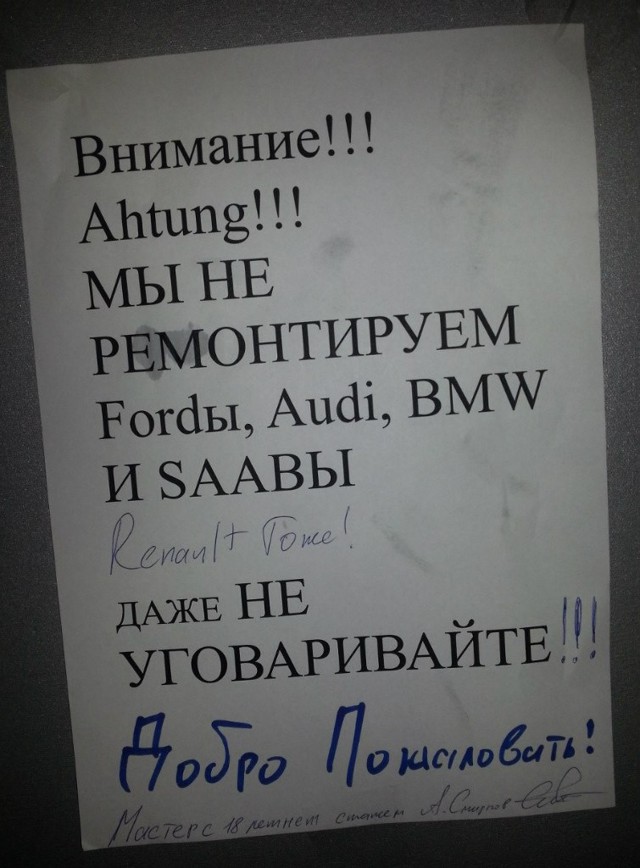 Внимание!!!
Ahtung!!!
МЫ НЕ
РЕМОНТИРУЕМ
Fordы, Audi, BMW
И SAABЫ
Renault Тоже!
ДАЖЕ НЕ
УГОВАРИВАЙТЕ!!!
Добро Пожаловать!
Мастер с 18 летнем стажем А.Смирнов